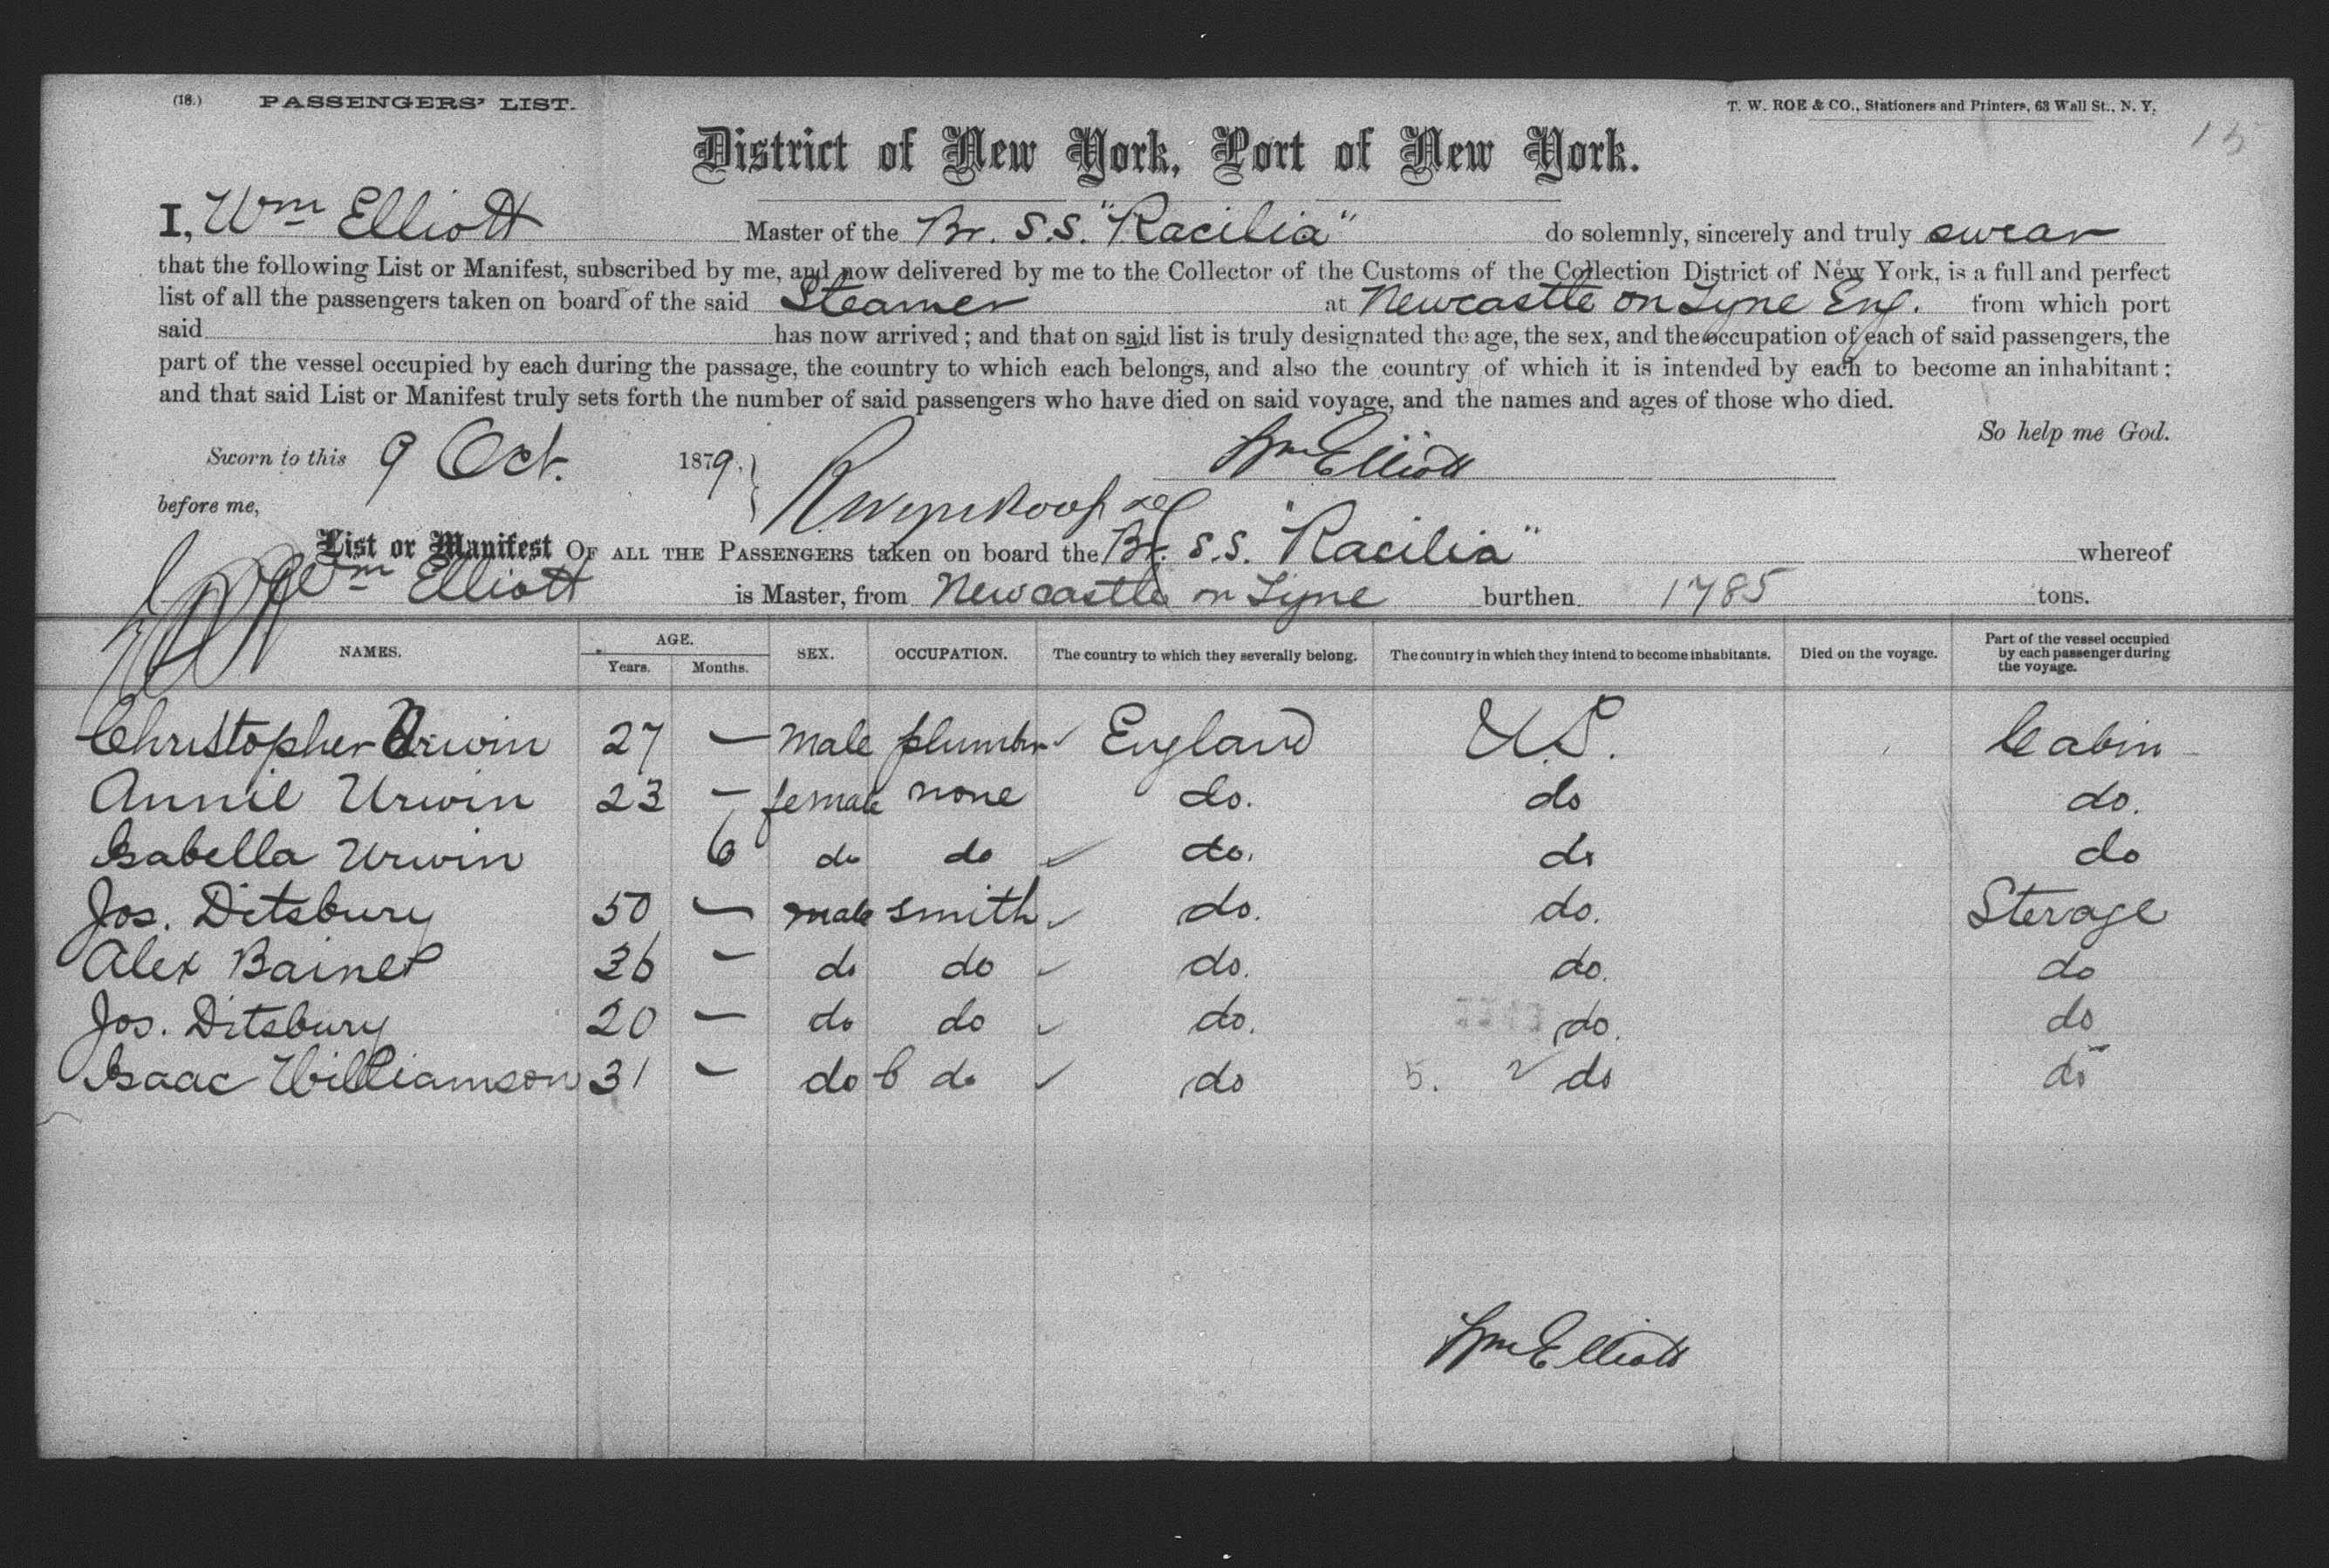 (18.) PASSENGERS' LIST. T. W. ROE & CO., Stationers and Printers, 63 Wall St., N. Y.
15
District of New York, Port of New York.
I, Wm Elliott Master of the Br. S.S. "Racilia" do solemnly, sincerely and truly swear
that the following List or Manifest, subscribed by me, and now delivered by me to the Collector of the Customs of the Collection District of New York, is a full and perfect
list of all the passengers taken on board of the said Steamer at Newcastle on Tyne Eng. from which port
said has now arrived; and that on said list is truly designated the age, the sex, and the occupation of each of said passengers, the
part of the vessel occupied by each during the passage, the country to which each belongs, and also the country of which it is intended by each to become an inhabitant;
and that said List or Manifest truly sets forth the number of said passengers who have died on said voyage, and the names and ages of those who died.
So help me God.
Sworn to this 9 Oct. 1879. Wm Elliott
before me,
List or Manifest OF ALL THE PASSENGERS taken on board the Br. S.S. "Racilia" whereof
Wm Elliott is Master, from Newcastle on Tyne burthen 1785 tons.
NAMES. AGE. Years. Months. SEX. OCCUPATION. The country to which they severally belong. The country in which they intend to become inhabitants. Died on the voyage. Part of the vessel occupied by each passenger during the voyage.
Christopher Urwin 27 — male plumber England U.S. Cabin
Annie Urwin 23 — female none do. do do.
Isabella Urwin 6 do do do. do do
Jos. Ditsbury 50 — male smith do. do. Sterage
Alex Baines 36 — do do do. do. do
Jos. Ditsbury 20 — do do do. do. do
Isaac Williamson 31 — do 6 do do 5. 2 do do
Wm Elliott